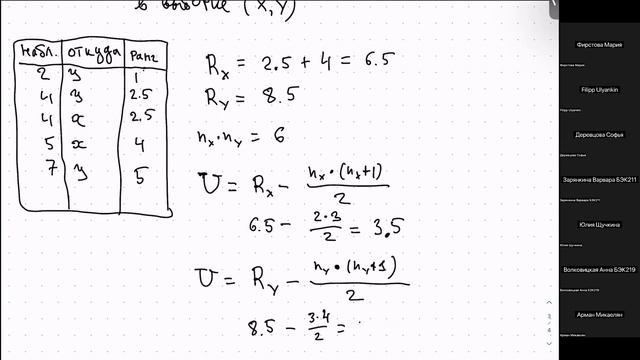 в выборке (x, y)
набл. откуда ранг
2 y 1
4 y 2.5
4 x 2.5
5 x 4
7 y 5
Rx = 2.5 + 4 = 6.5
Ry = 8.5
nx · ny = 6
U = Rx − nx · (nx+1) / 2
6.5 − 2·3 / 2 = 3.5
U = Ry − ny · (ny+1) / 2
8.5 − 3·4 / 2 =
Фирстова Мария
Фирстова Мария
Filipp Ulyankin
Filipp Ulyankin
Деревцова Софья
Деревцова Софья
Зарянкина Варвара БЭК211
Зарянкина Варвара БЭК211
Юлия Щучкина
Юлия Щучкина
Волковицкая Анна БЭК219
Волковицкая Анна БЭК219
Арман Микаелян
Арман Микаелян